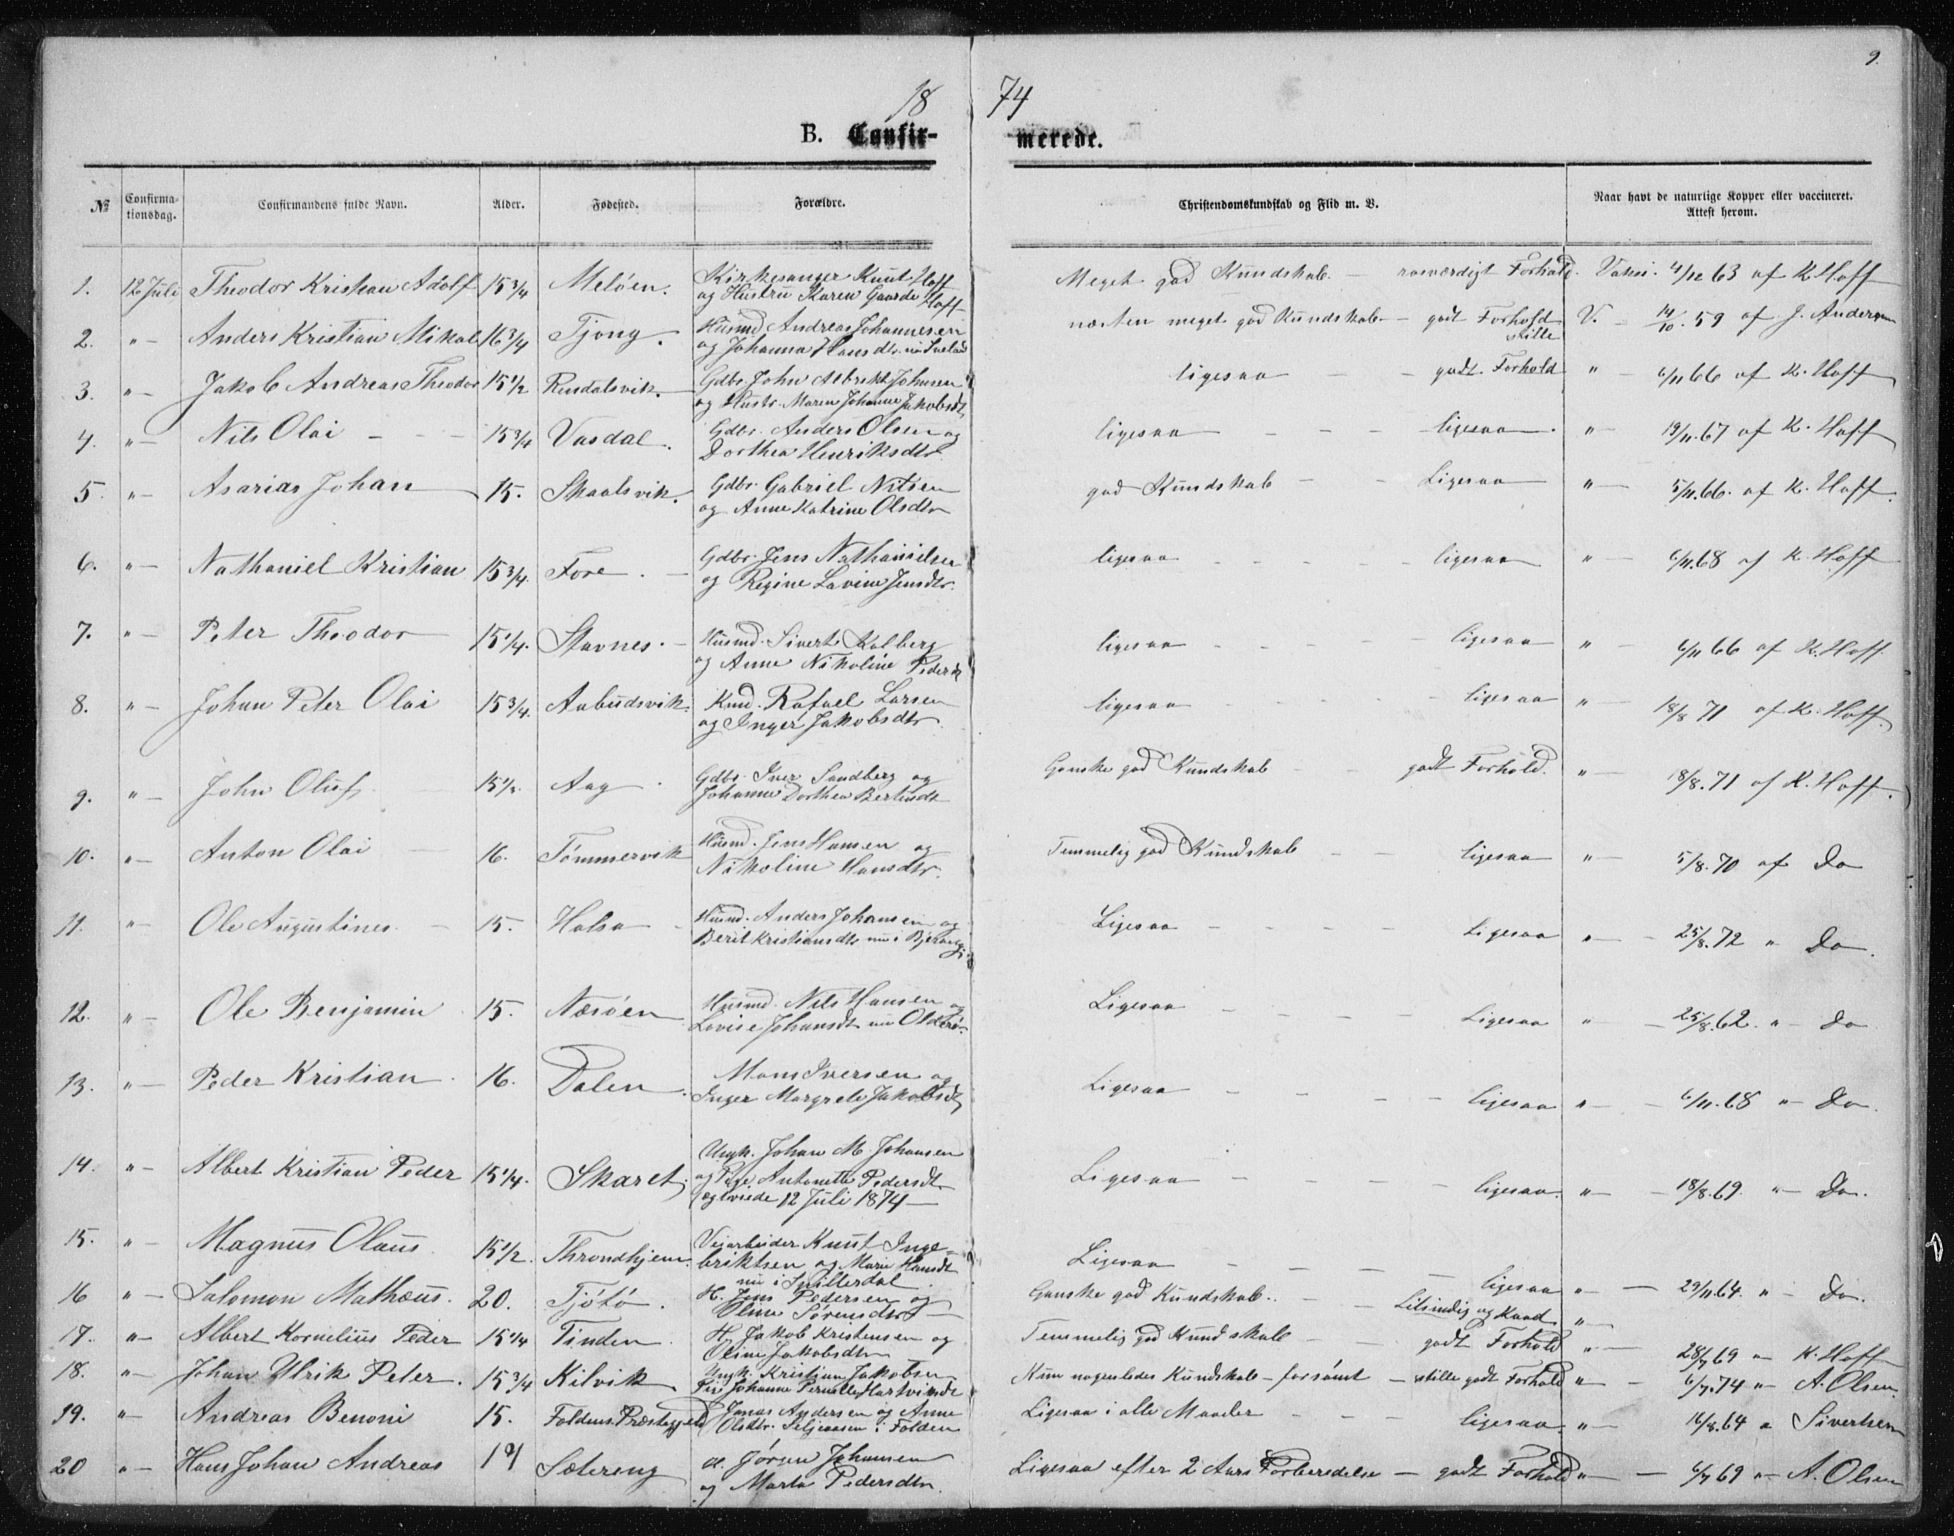 9.
18 74
B. Confir- merede.
№ Confirma-tionsdag. Confirmandens fulde Navn. Alder. Fødested. Forældre. Christendomskundskab og Flid m. V. Naar havt de naturlige Kopper eller vaccineret. Attest herom.
1. 12 Juli Theodor Kristian Adolf 15 3/4 Meløen. Kirkesanger Knut Hoff Meget god Kundskab. — rosværdigt Forhold. Vaksi. 4/12 63 af K. Hoff
og Hustru Karen Gaarde Hoff
2. " — Anders Kristian Mikal 16 3/4 Tjong. Husmd Andreas Johannesen næsten meget god Kundskab — godt Forhold V. — 14/10. 59 af J. Andersen
og Johanna Hansdtr. stille
3. " — Jakob Andreas Theodor 15 1/2 Rendalsvik. Gdbr. John Albrikt Johnsen ligesaa — — godt Forhold " — 6/11 66 af K. Hoff
og Hustr. Maren Johanne Jakobsdt
4. " — Nils Olai — — 15 3/4 Vasdal. Gdbr. Anders Olsen og ligesaa — — — ligesaa — " — 19/11. 67 af K. Hoff
Dorthea Henriksdtr
5. " — Asarias Johan 15. Skaalsvik. Gdbr. Gabriel Nilsen god Kundskab — — Ligesaa " — 5/11. 66. af K. Hoff.
og Anne Katrine Olsdtr
6. " — Nathaniel Kristian 15 3/4. Fore. — Gdbr. Jens Nathanielsen ligesaa — — — ligesaa " — 6/11. 68 af K. Hoff
og Regine Lavine Jensdtr.
7. " — Peter Theodor 15 1/4. Stavnes. — Husmd. Sivert Kolberg ligesaa — — — ligesaa " — 6/11 66 af K. Hoff
og Anne Nikoline Pedersdt
8. " — Johan Peter Olai 15 3/4. Aabudsvik. Knd. Rafael Larsen ligesaa — — — ligesaa " — 18/8 71 af K. Hoff
og Inger Jakobsdtr.
9. " — John Oluf 15 1/2. Aag. Gdbr. Iver Sandberg og Ganske god Kundskab — — godt Forhold. " — 18/8. 71 af K. Hoff.
Johanne Dorthea Bertusdt
10. " — Anton Olai — 16. Tømmervik Husmd. Jens Hansen og Temmelig god Kundskab — — ligesaa " — 5/8. 70 af Do
Nikoline Hansdtr.
11. " — Ole Augustines. — 15. Halsa — Husmd. Anders Johansen og Ligesaa — — — — Ligesaa " — 25/8. 72 " Do
Berit Kristiansdtr nu i
12. " — Ole Benjamin 15. Næsøen Husmd. Nils Hansen og Ligesaa — — — — Ligesaa " — 25/8. 62. " — Do
Lovise Johansdt nu
13. " — Peder Kristian. 16. Dalen. Mons Iversen og Ligesaa — — — — ligesaa " — 6/11. 68 " — Do.
Inger Margrete Jakobsdt
14. " — Albert Kristian Peder 15 1/4. Skaret. Ungk. Johan M. Johansen Ligesaa — — — — ligesaa. " — 18/8. 69. " — Do.
og Pige Antonette Pedersdt
ægtviede 12 Juli 1874 —
15. " — Magnus Olaus. 15 1/2. Throndhjem. Veiarbeider Knut Inge- Ligesaa — — — — ligesaa " — 29/11. 64. " — Do.
briktsen og Marie Hansdt
nu i
16 " — Salomon Mathæus. 20. Tjøtø. H. Jens Pedersen og Ganske god Kundskab. — — " —
Sørensdtr —
17. " — Albert Kornelius Peder 15 1/4 Tinden. H. Jakob Kristensen og Temmelig god Kundskab — — godt Forhold " — 28/9 69 " K. Hoff
Oline Jakobsdtr
18. " — Johan Ulrik Peter. 15 3/4 Kilvik Ungk. Kristian Jakobsen Kun nogenledes Kundskab — forsømt — stille godt Forhold " — 6/7. 74 " — A. Olsen.
Pie Johanne Pernelle Hartviksdt
19. " — Andreas Benoni 15. Foldens Præstegjeld Jonas Andersen og Anne Ligesaa i alle Maader — — ligesaa " — 16/8. 64 " Sivertsen
Olsdtr. i Folden
20 " — Hans Johan Andreas 19 Sætereng Gd. Jørgen Johansen Ligesaa efter 2 Aars Forberedelse — godt Forhold " — 6/7 69 " — A. Olsen
og Marta Pedersdtr.